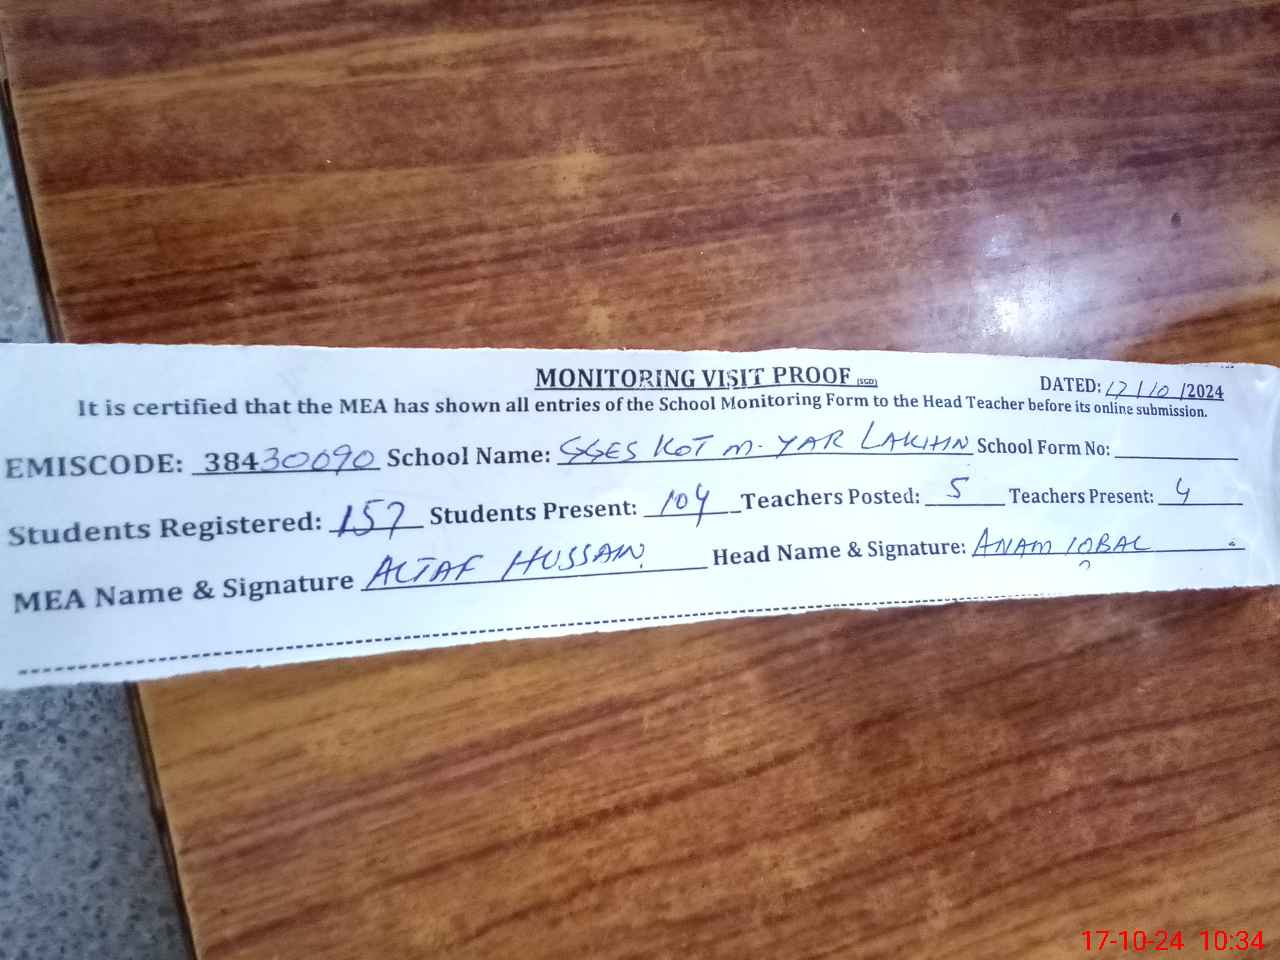 MONITORING VISIT PROOF (SGD)
DATED: 17/10/2024
It is certified that the MEA has shown all entries of the School Monitoring Form to the Head Teacher before its online submission.
EMISCODE: 38430090 School Name: GGES KOT M. YAR LAKHIN School Form No:
Students Registered: 157 Students Present: 104 Teachers Posted: 5 Teachers Present: 4
MEA Name & Signature ALTAF HUSSAIN Head Name & Signature: ANAM IQBAL
17-10-24 10:34